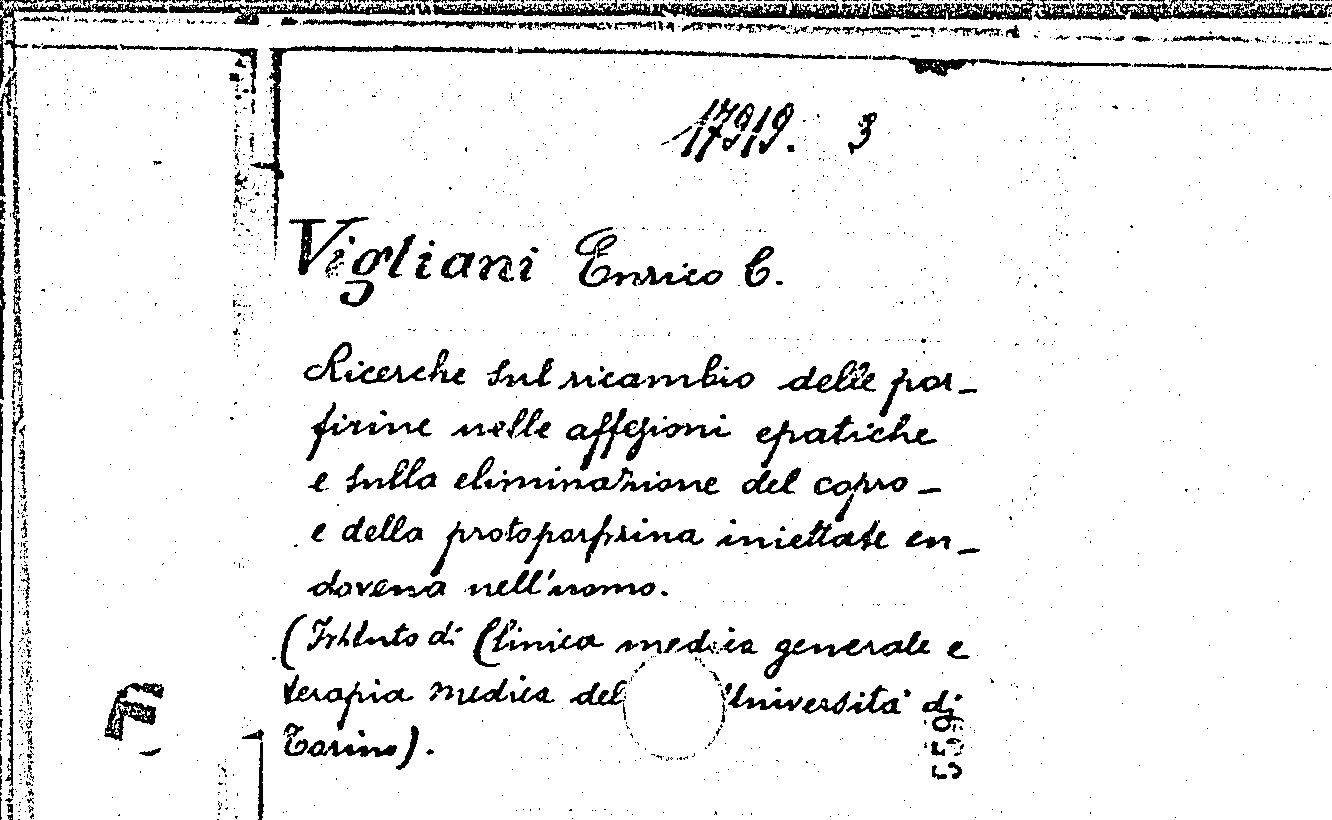 17919. 3
Vigliani Enrico C.
Ricerche sul ricambio delle por-
firine nelle affezioni epatiche
e sulla eliminazione del copro-
e della protoporfirina iniettate en-
dovena nell'uomo.
(Istituto di Clinica medica generale e
terapia medica del l'Università di
Torino).
F
559